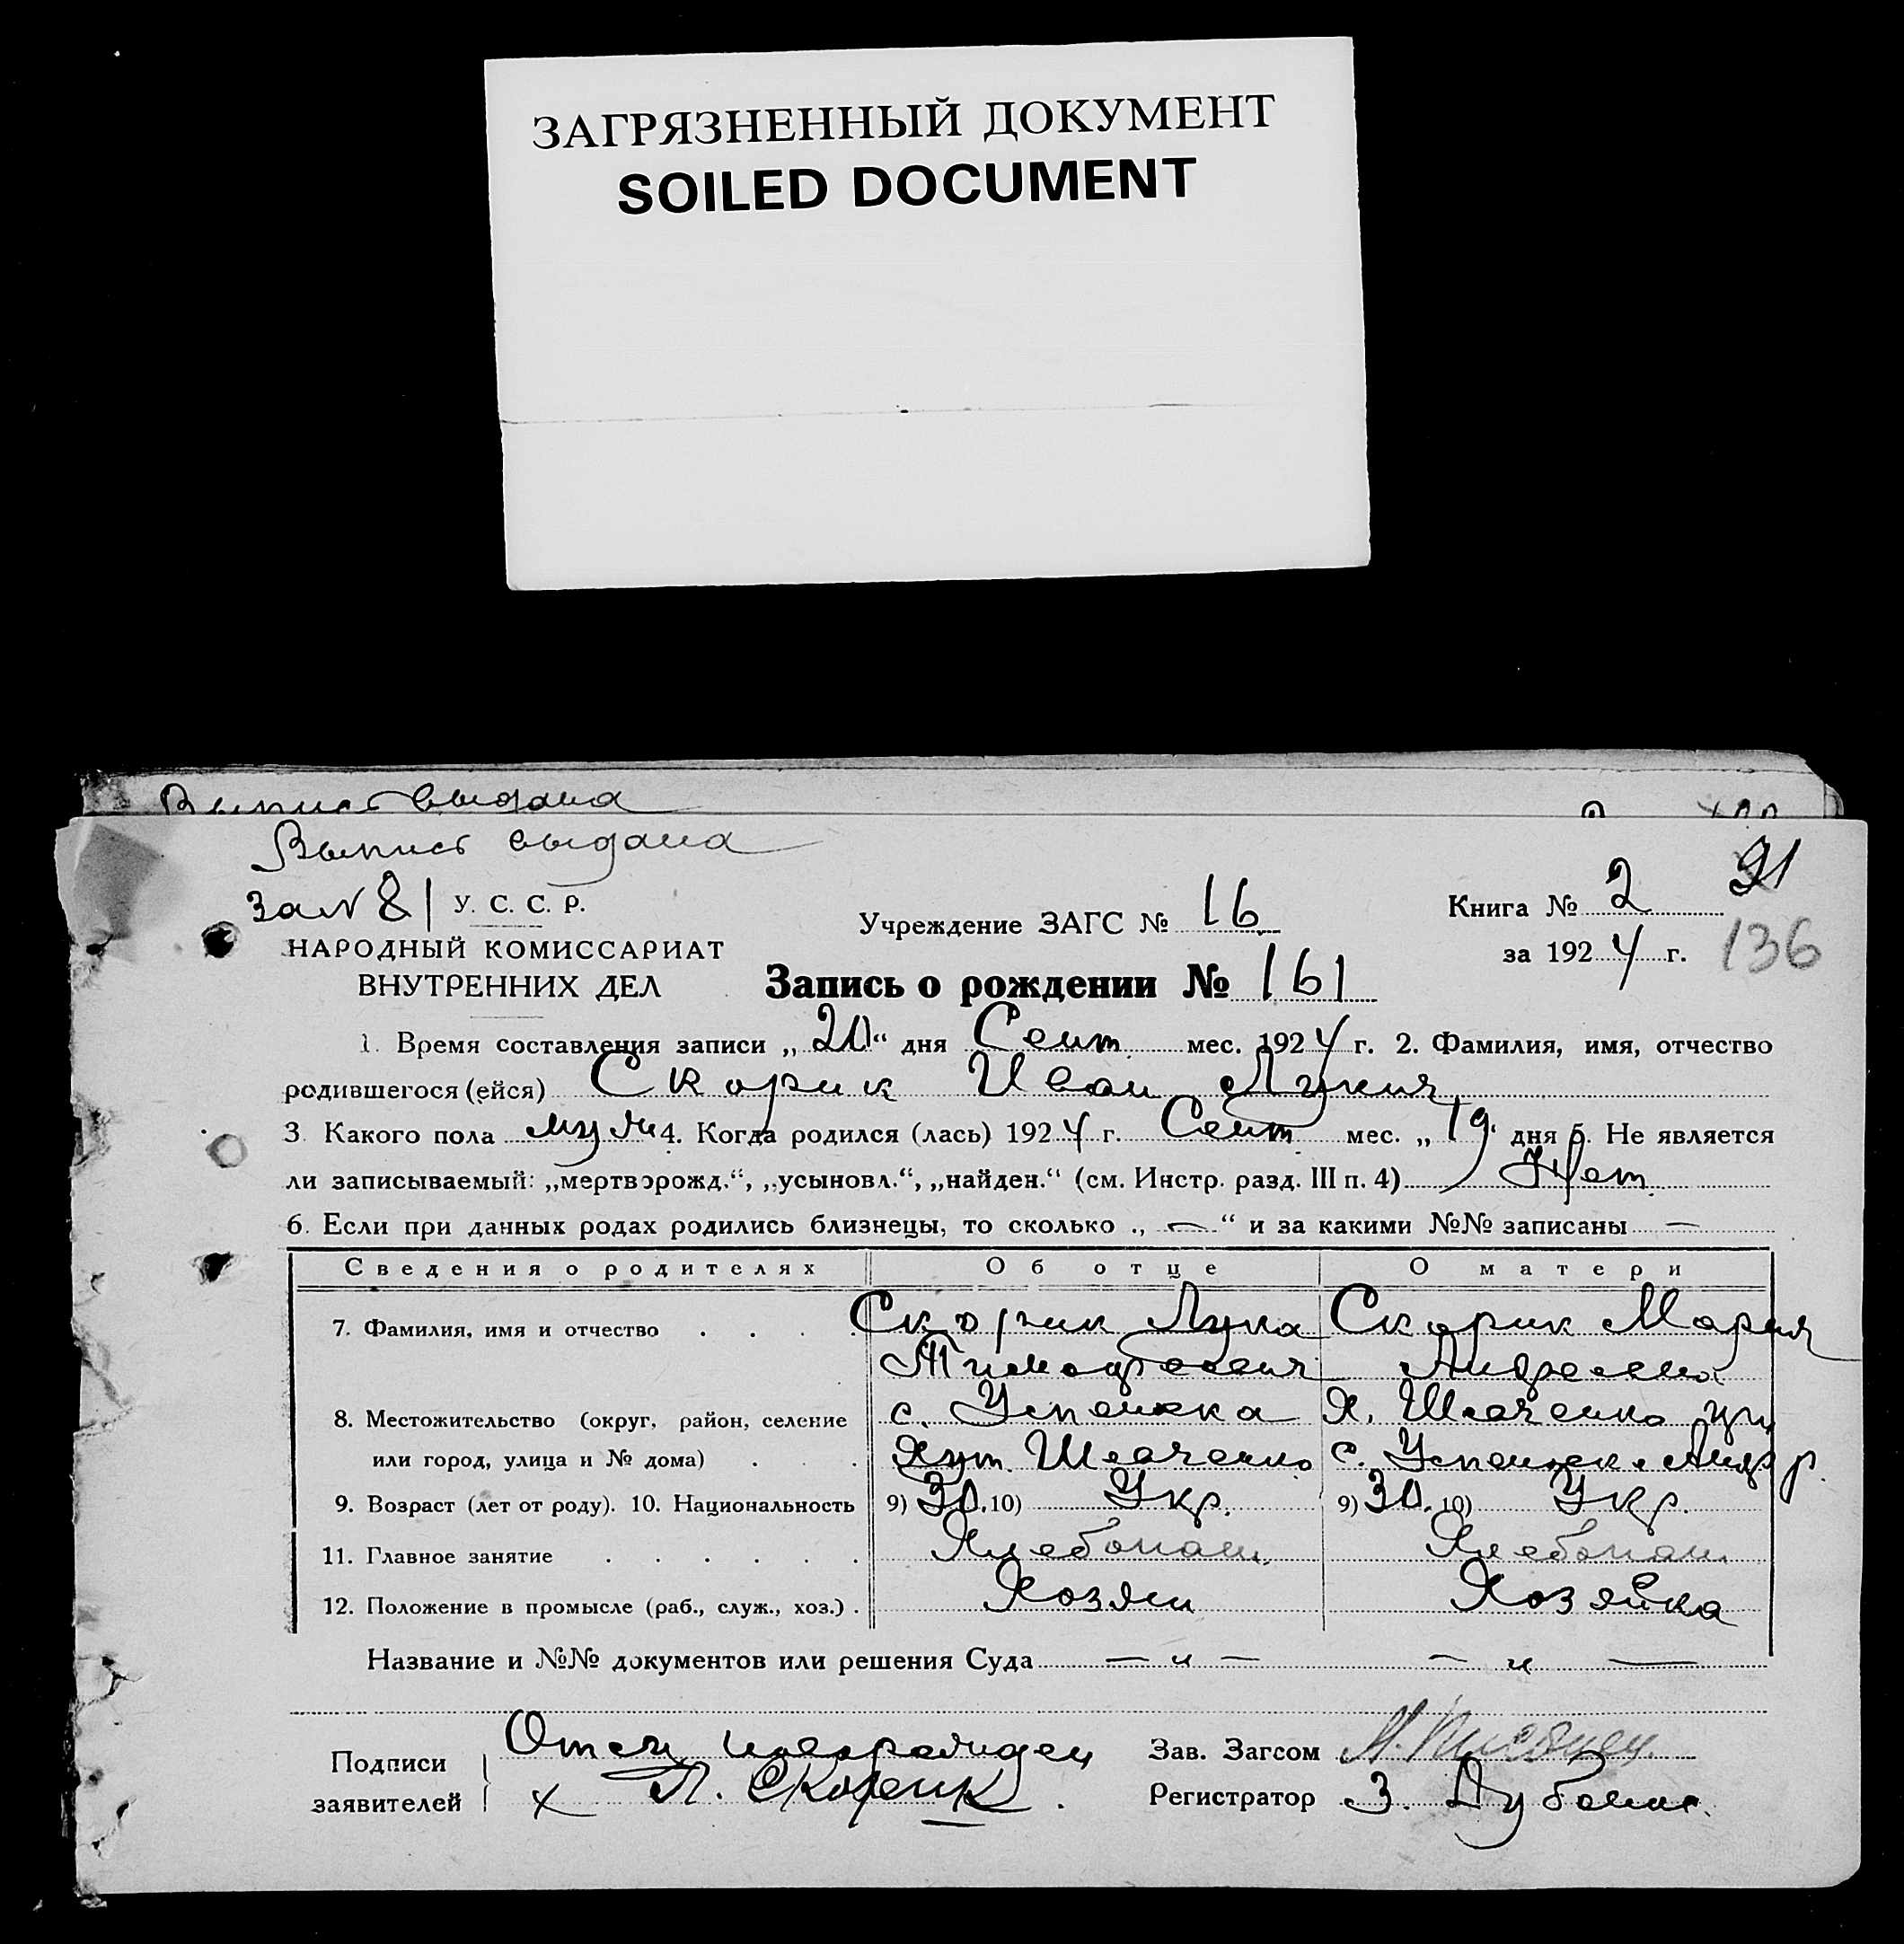 ЗАГРЯЗНЕННЫЙ ДОКУМЕНТ
SOILED DOCUMENT
Выпись выдана
Выпись выдана
за № 81
У. С. С. Р.
НАРОДНЫЙ КОМИССАРИАТ
ВНУТРЕННИХ ДЕЛ
Учреждение ЗАГС № 16
Книга № 2 91
за 1924 г. 136
Запись о рождении № 161
1. Время составления записи „20“ дня Сент. мес. 1924 г. 2. Фамилия, имя, отчество
родившегося (ейся) Скорик Иван Лукич
3. Какого пола муж. 4. Когда родился (лась) 1924 г. Сент мес. „19“ дня 5. Не является
ли записываемый: „мертворожд.“, „усыновл.“, „найден.“ (см. Инстр. разд. III п. 4) Нет.
6. Если при данных родах родились близнецы, то сколько „ — “ и за какими №№ записаны —
Сведения о родителях Об отце О матери
7. Фамилия, имя и отчество Скорик Лука Скорик Мария
Тимофеевич Андреевна
8. Местожительство (округ, район, селение с. Успенка Х. Шевченко
или город, улица и № дома) Хут. Шевченко с.
9. Возраст (лет от роду). 10. Национальность 9) 30. 10) Укр. 9) 30. 10) Укр.
11. Главное занятие Хлебопаш. Хлебопаш.
12. Положение в промысле (раб., служ., хоз.) Хозяин Хозяйка
Название и №№ документов или решения Суда — „ — — „ —
Подписи
заявителей
Отец
х Л. Скорик
Зав. Загсом
Регистратор З.